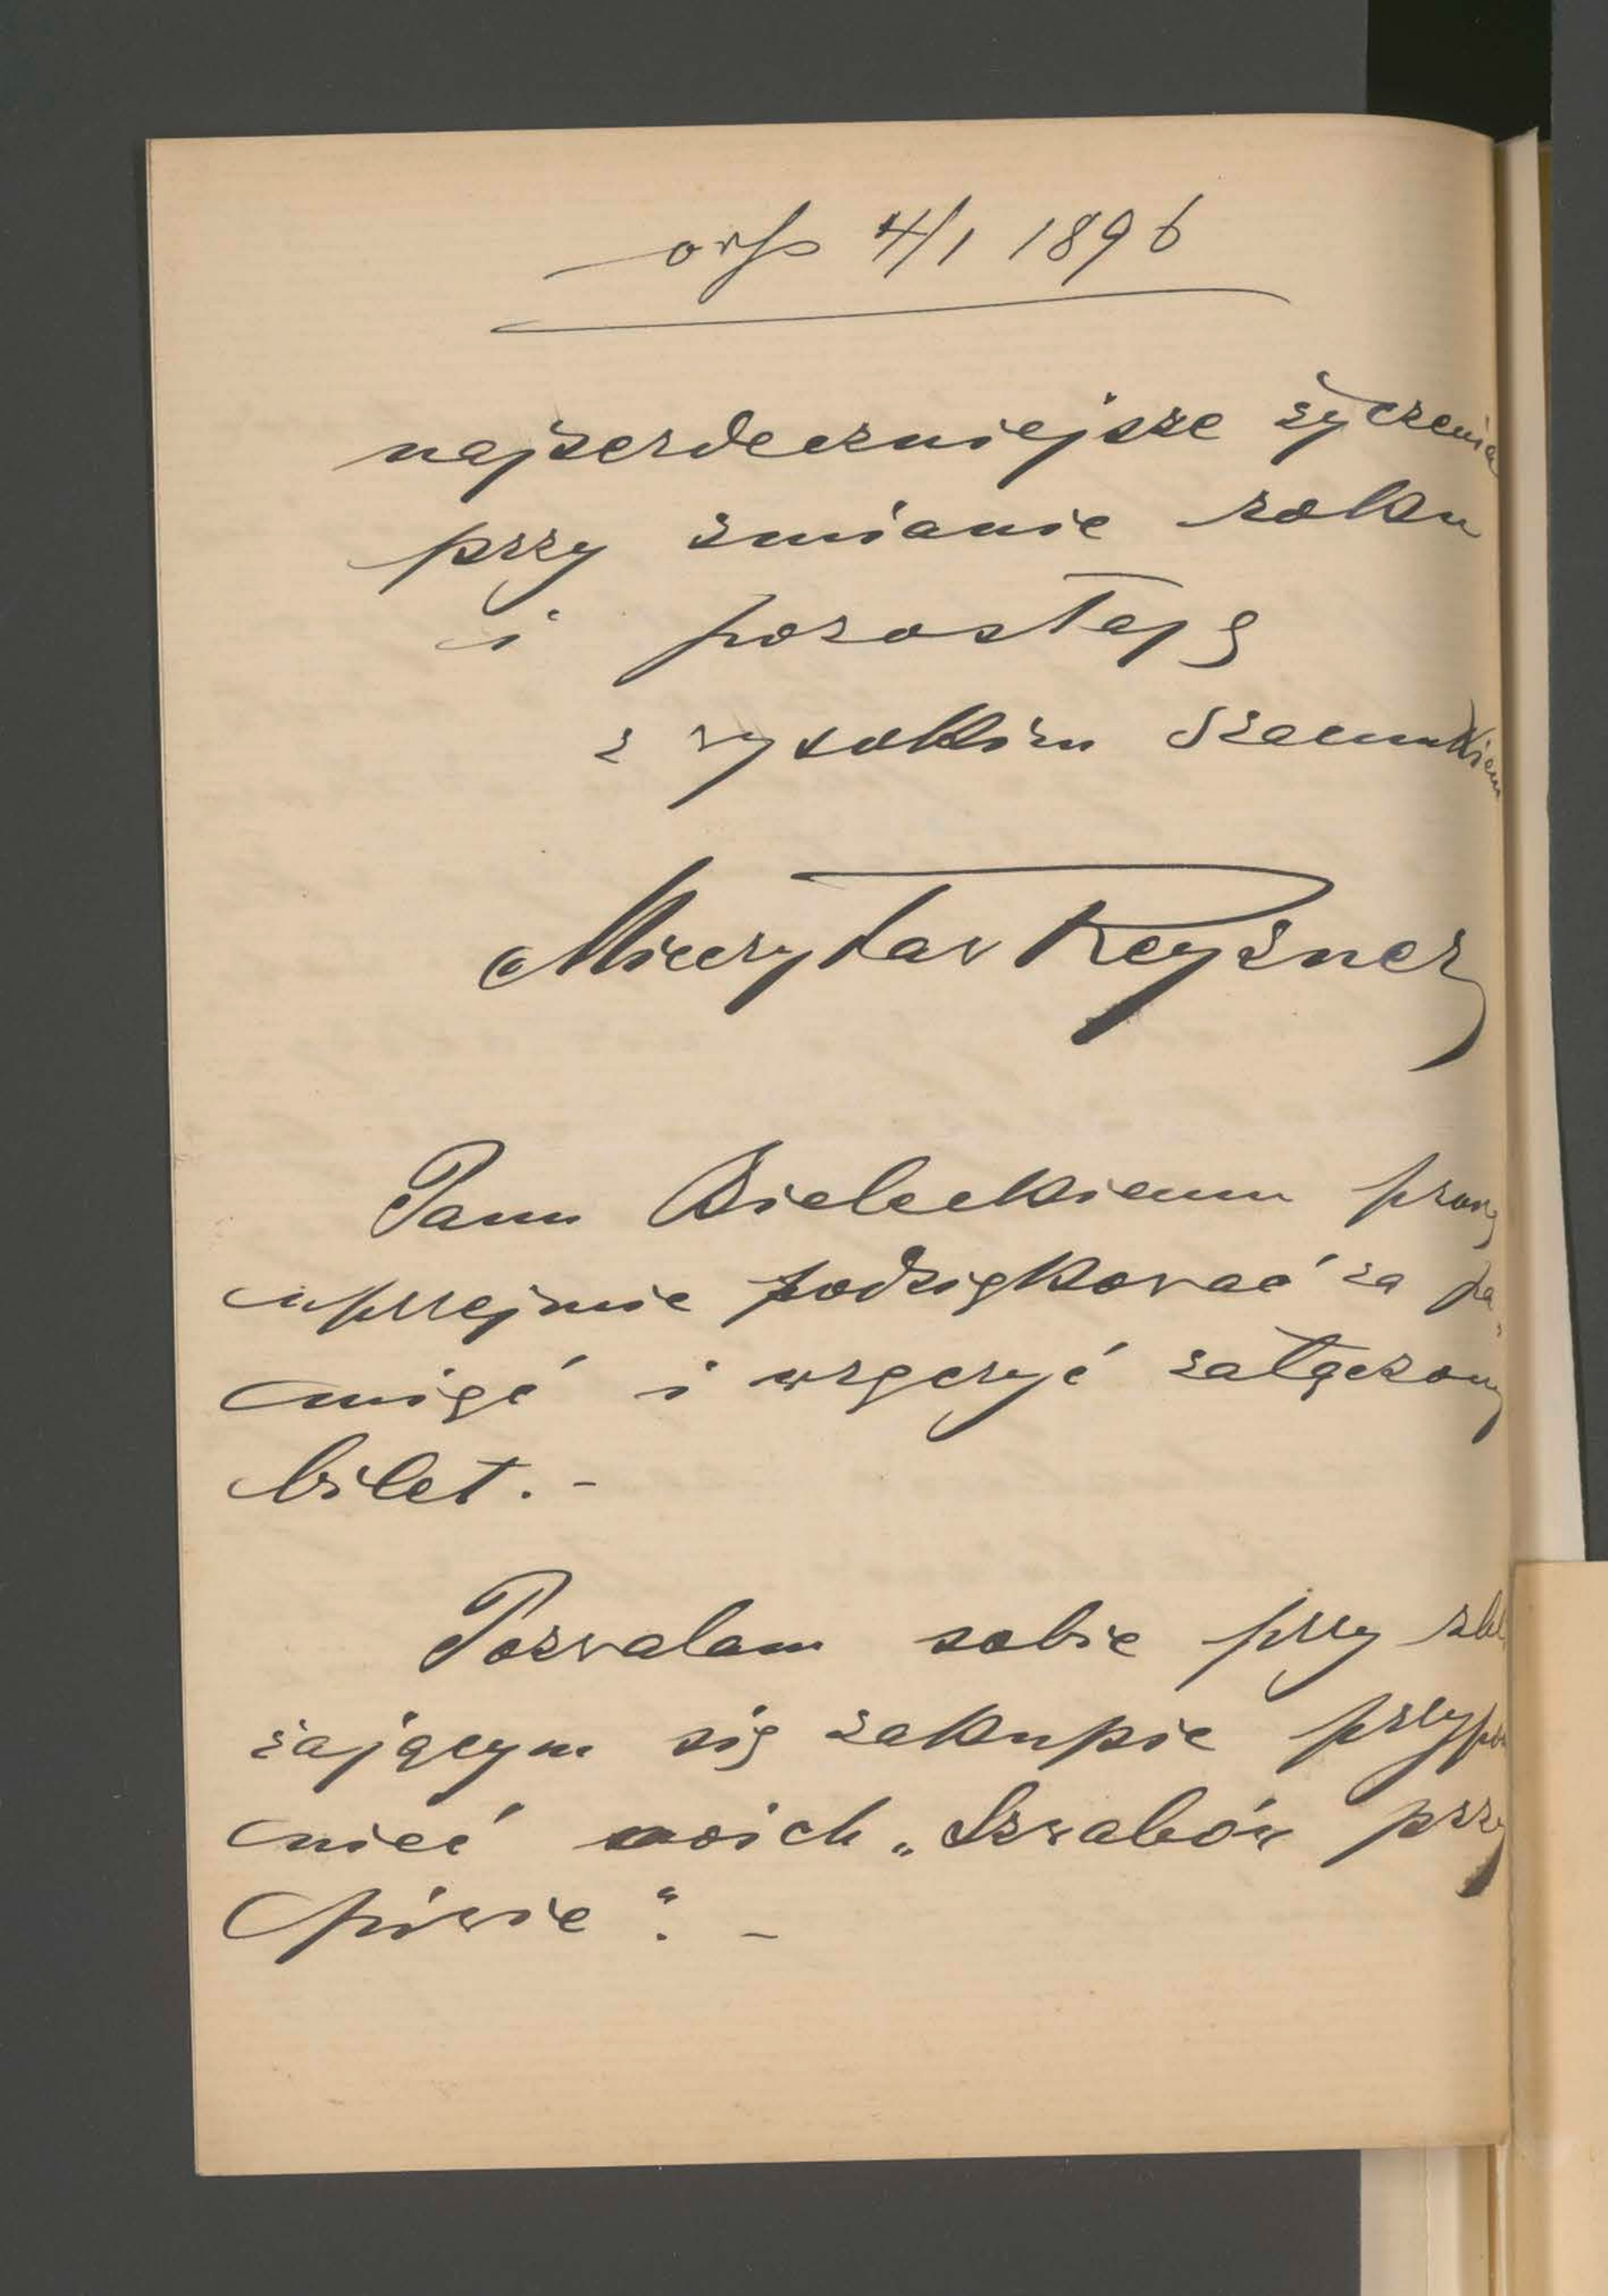 odp 4/1 1896
najserdeczniejsze życzenia
przy zmianie roku
i pozostaję
z wysokim szacunkiem
Mieczysław Reyzner
Panu Bieleckiemu proszę
uprzejmie podziękować za pa
mięć i wręczyć załączony
bilet. -
Pozwalam sobie przy zbli
żającym się zakupie przypo
mnieć moich „Szwabów przy
piwie". -